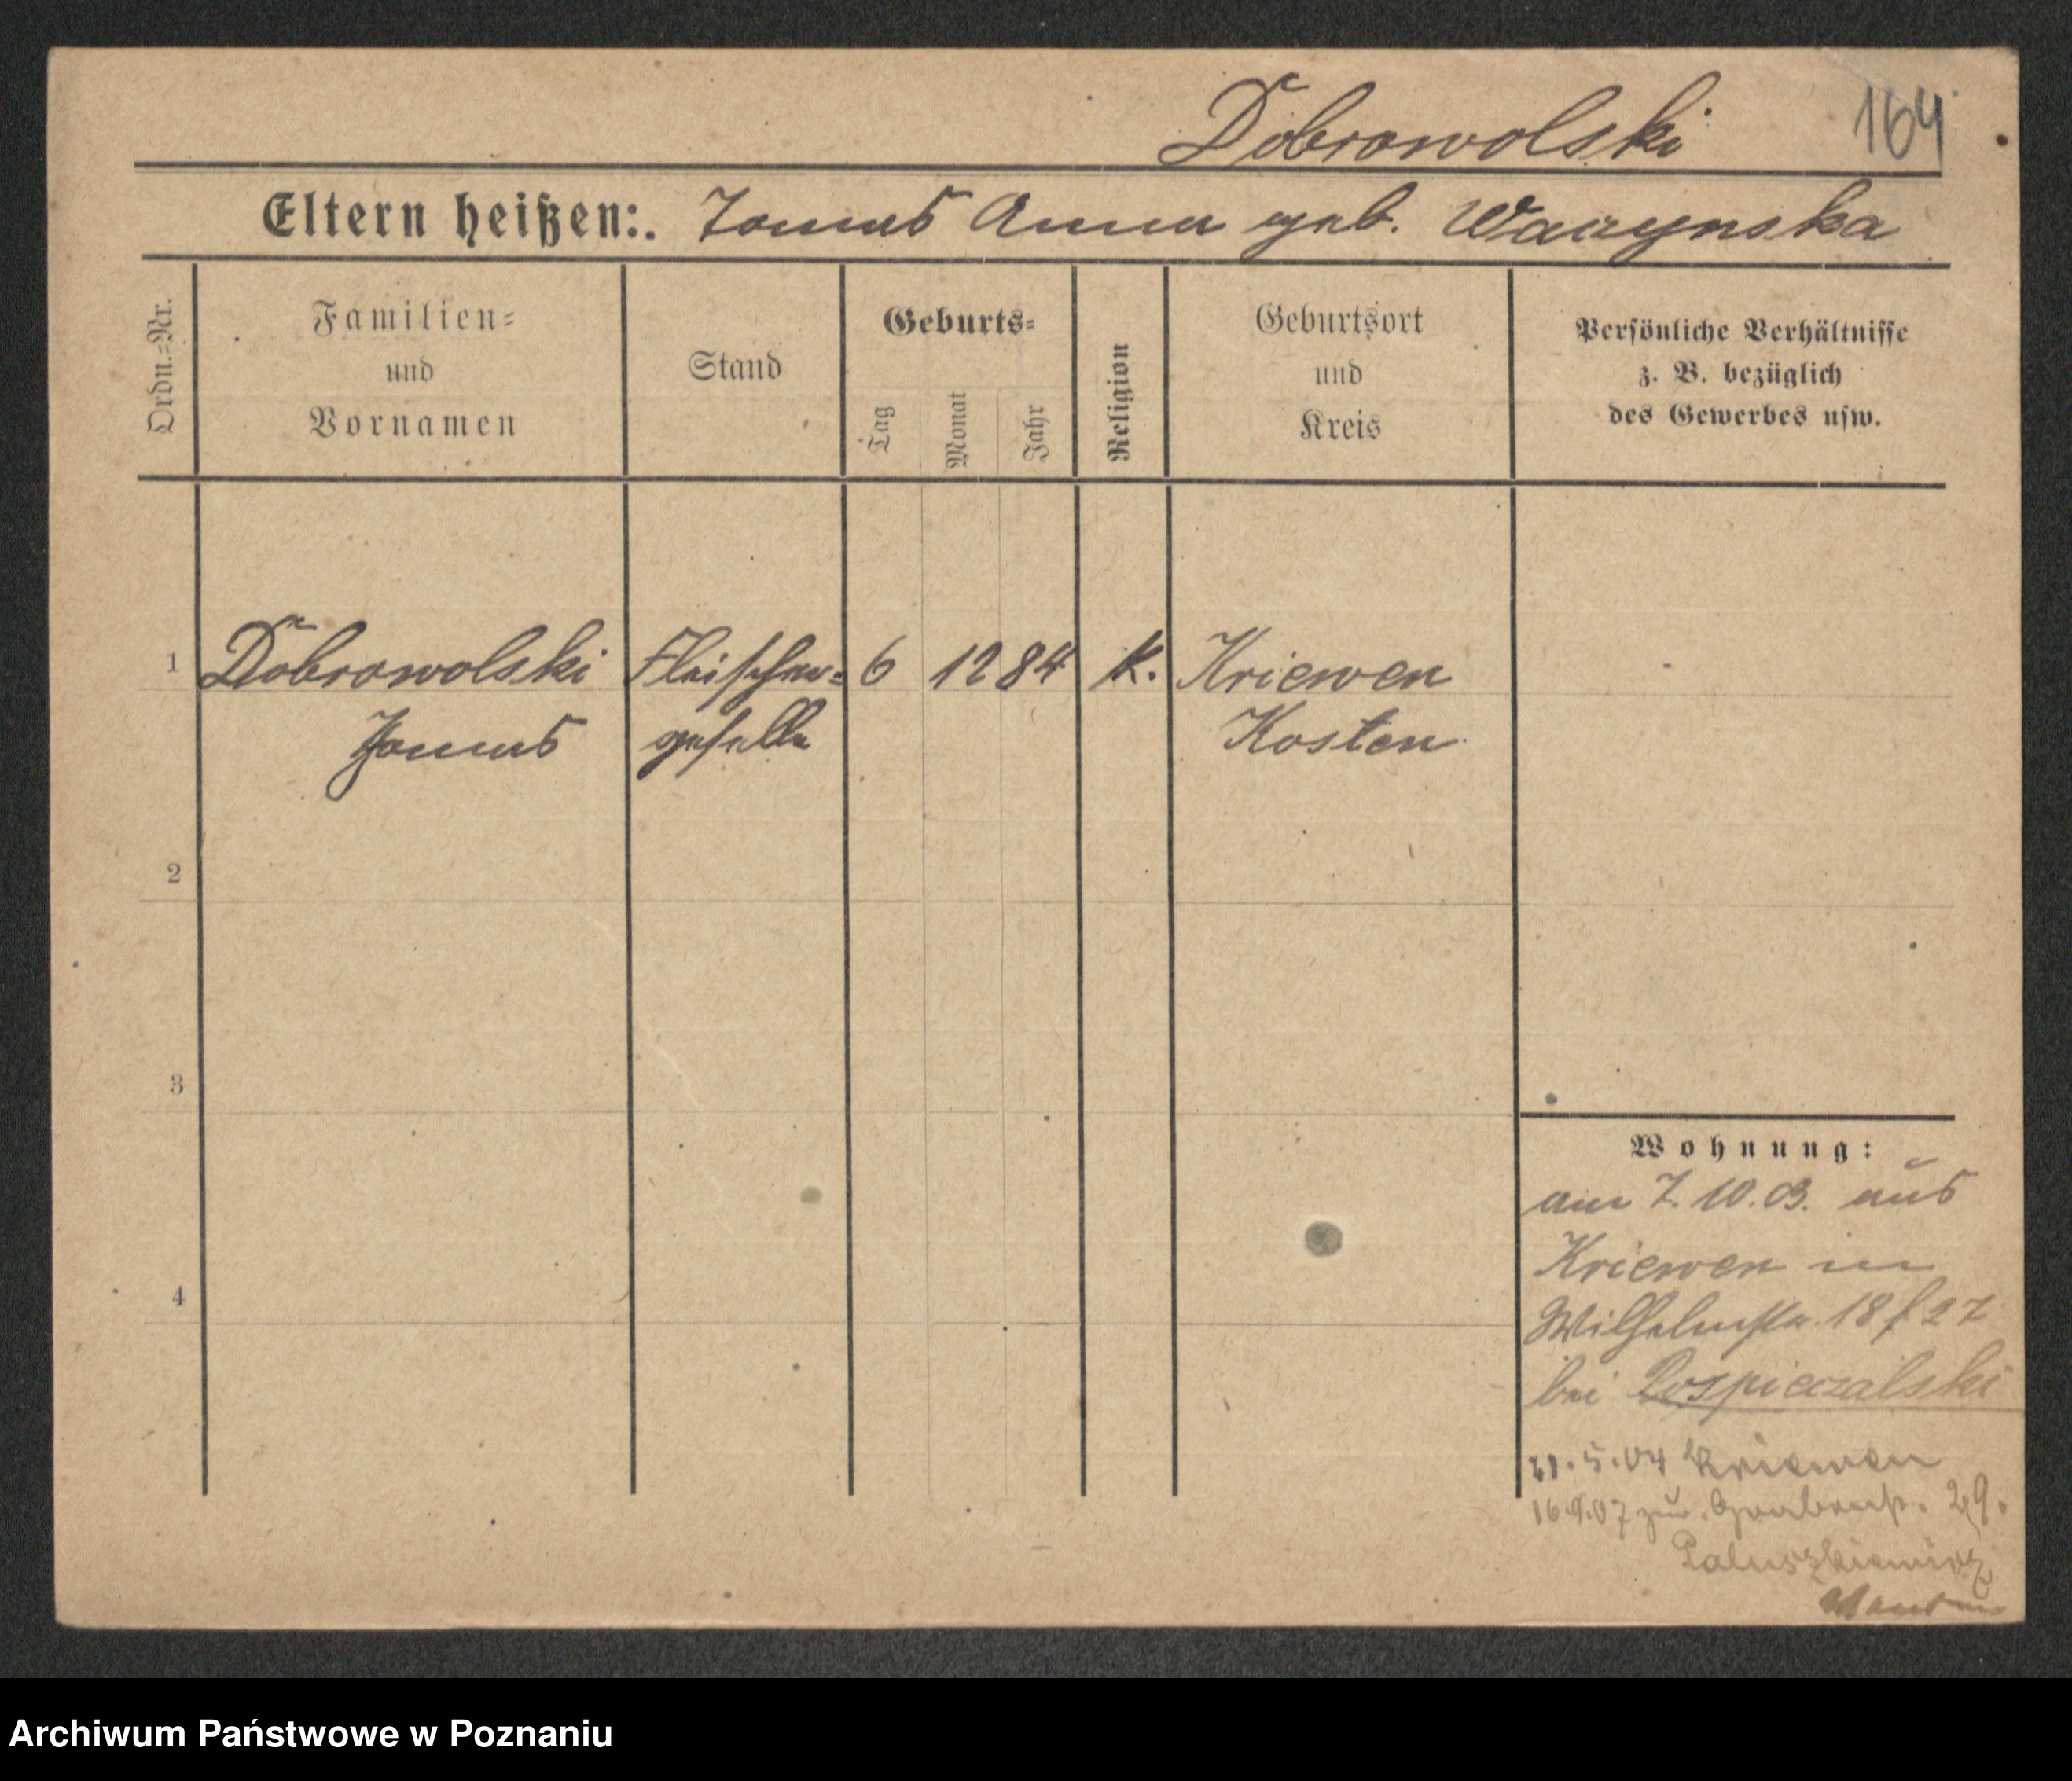 Dobrowolski 164
Eltern heißen: Thomas Anna geb. Waczynska
Ordn.=Nr.
Familien=
und
Vornamen
Stand
Geburts=
Tag
Monat
Jahr
Religion
Geburtsort
und
Kreis
Persönliche Verhältnisse
z. B. bezüglich
des Gewerbes usw.
1 Dobrowolski Fleischer= 6 12 84 k. Kriewen
geselle Kosten
2
3
4
Wohnung:
am 7. 10. 03. aus
Kriewen in
Wilhelmstr. 18 / 27
bei Pospieczalski
21.5.04 Kriewen
16.9.07 zur. Grabenstr. 29.
Paluszkiewicz
Archiwum Państwowe w Poznaniu